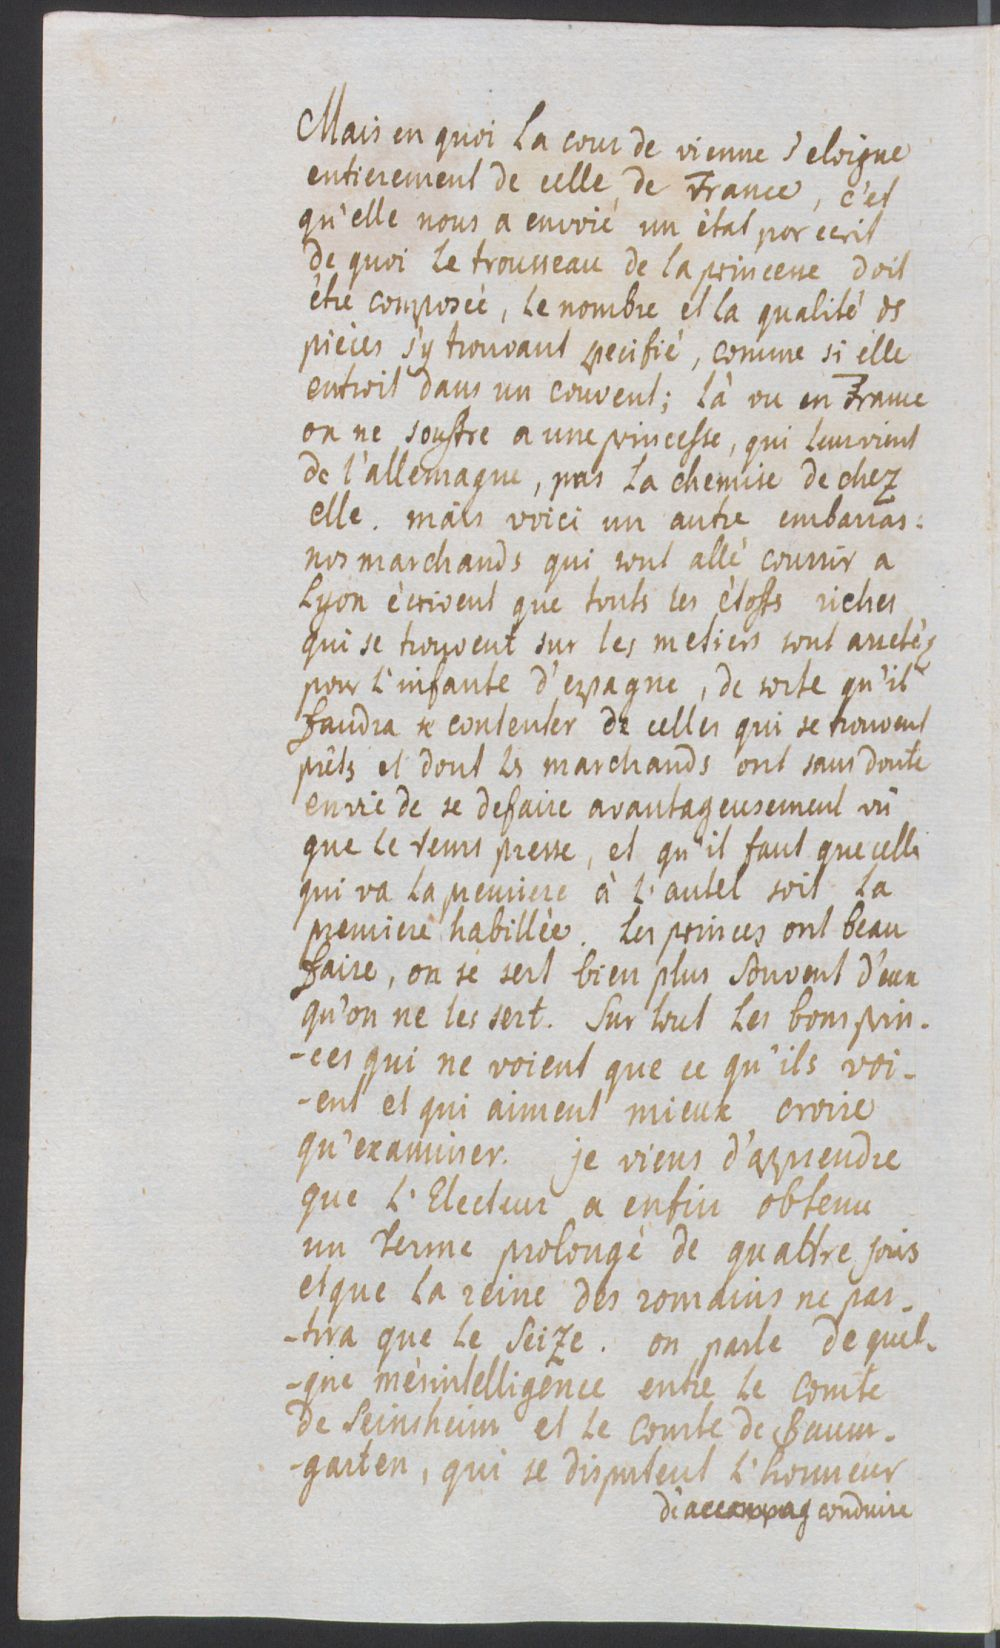 Mais en quoi La cour de vienne s'eloigne
entierement de celle de France, c'est
qu'elle nous a envoié un ètat par ecrit
de quoi Le trousseau de la princesse doit
être composèe, Le nombre et La qualité ds
pièces s'y trouvant specifié, comme si elle
entroit dans un couvent; là ou en France
on ne souffre a une princesse, qui leur vient
de l'allemagne, pas La chemise de chez
elle. mais voici un autre embarras:
nos marchands qui sont allé courrir a
Lyon ècrivent que touts les ètoffs riches
qui se trouvent sur les metiers sont arretés
pour L'infante d'espagne, de sorte qu'il
faudra se contenter de celles qui se trouvent
prêts et dont Ls marchands ont sans doute
envie de se defaire avantageusement vû
que Le tems presse, et qu'il faut que celle
qui va La premiere à L'autel soit La
premiere habillèe. Les princes ont beau
faire, on se sert bien plus souvent d'eux
qu'on ne les sert. Sur tout Les bons prin-
-ces qui ne voient que ce qu'ils voi-
-ent et qui aiment mieux croire
qu'examiner. je viens d'apprendre
que L'Electeur a enfin obtenu
un terme prolongé de quattre jours
et que La reine des romains ne par-
-tira que Le Seize. on parle de quel-
-que mèsintelligence entre Le comte
De Seinsheim et Le comte de Baum-
-garten, qui se disputent L'honneur
d'accompag conduire